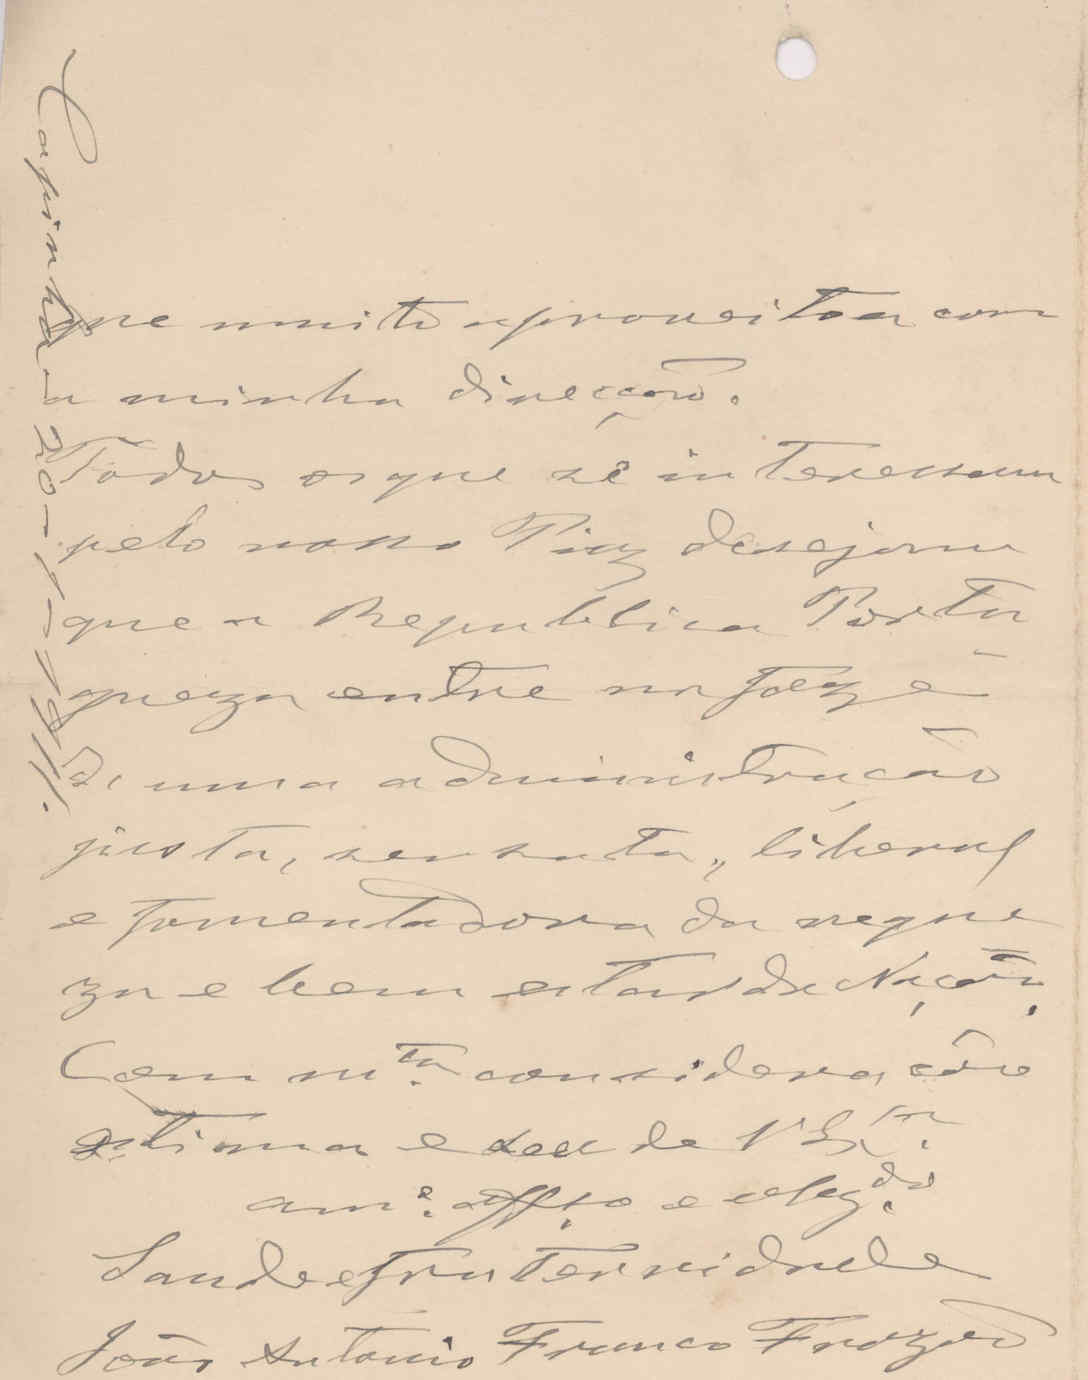 que muito aproveitou com
a minha direcção.
Todos os que se interessam
pelo nosso Paiz desejam
que a Republica Portu
gueza entre na faze
de uma administração
justa, sensata, liberal
e fomentadora da rique
za e bem estar da Nação.
Com m.ta consideração
estima e sou de V Ex.ma
am.º aff.to e obrg.do
Saude e fraternidade
João Antonio Franco Frazão
Capinha 20-1-1911.